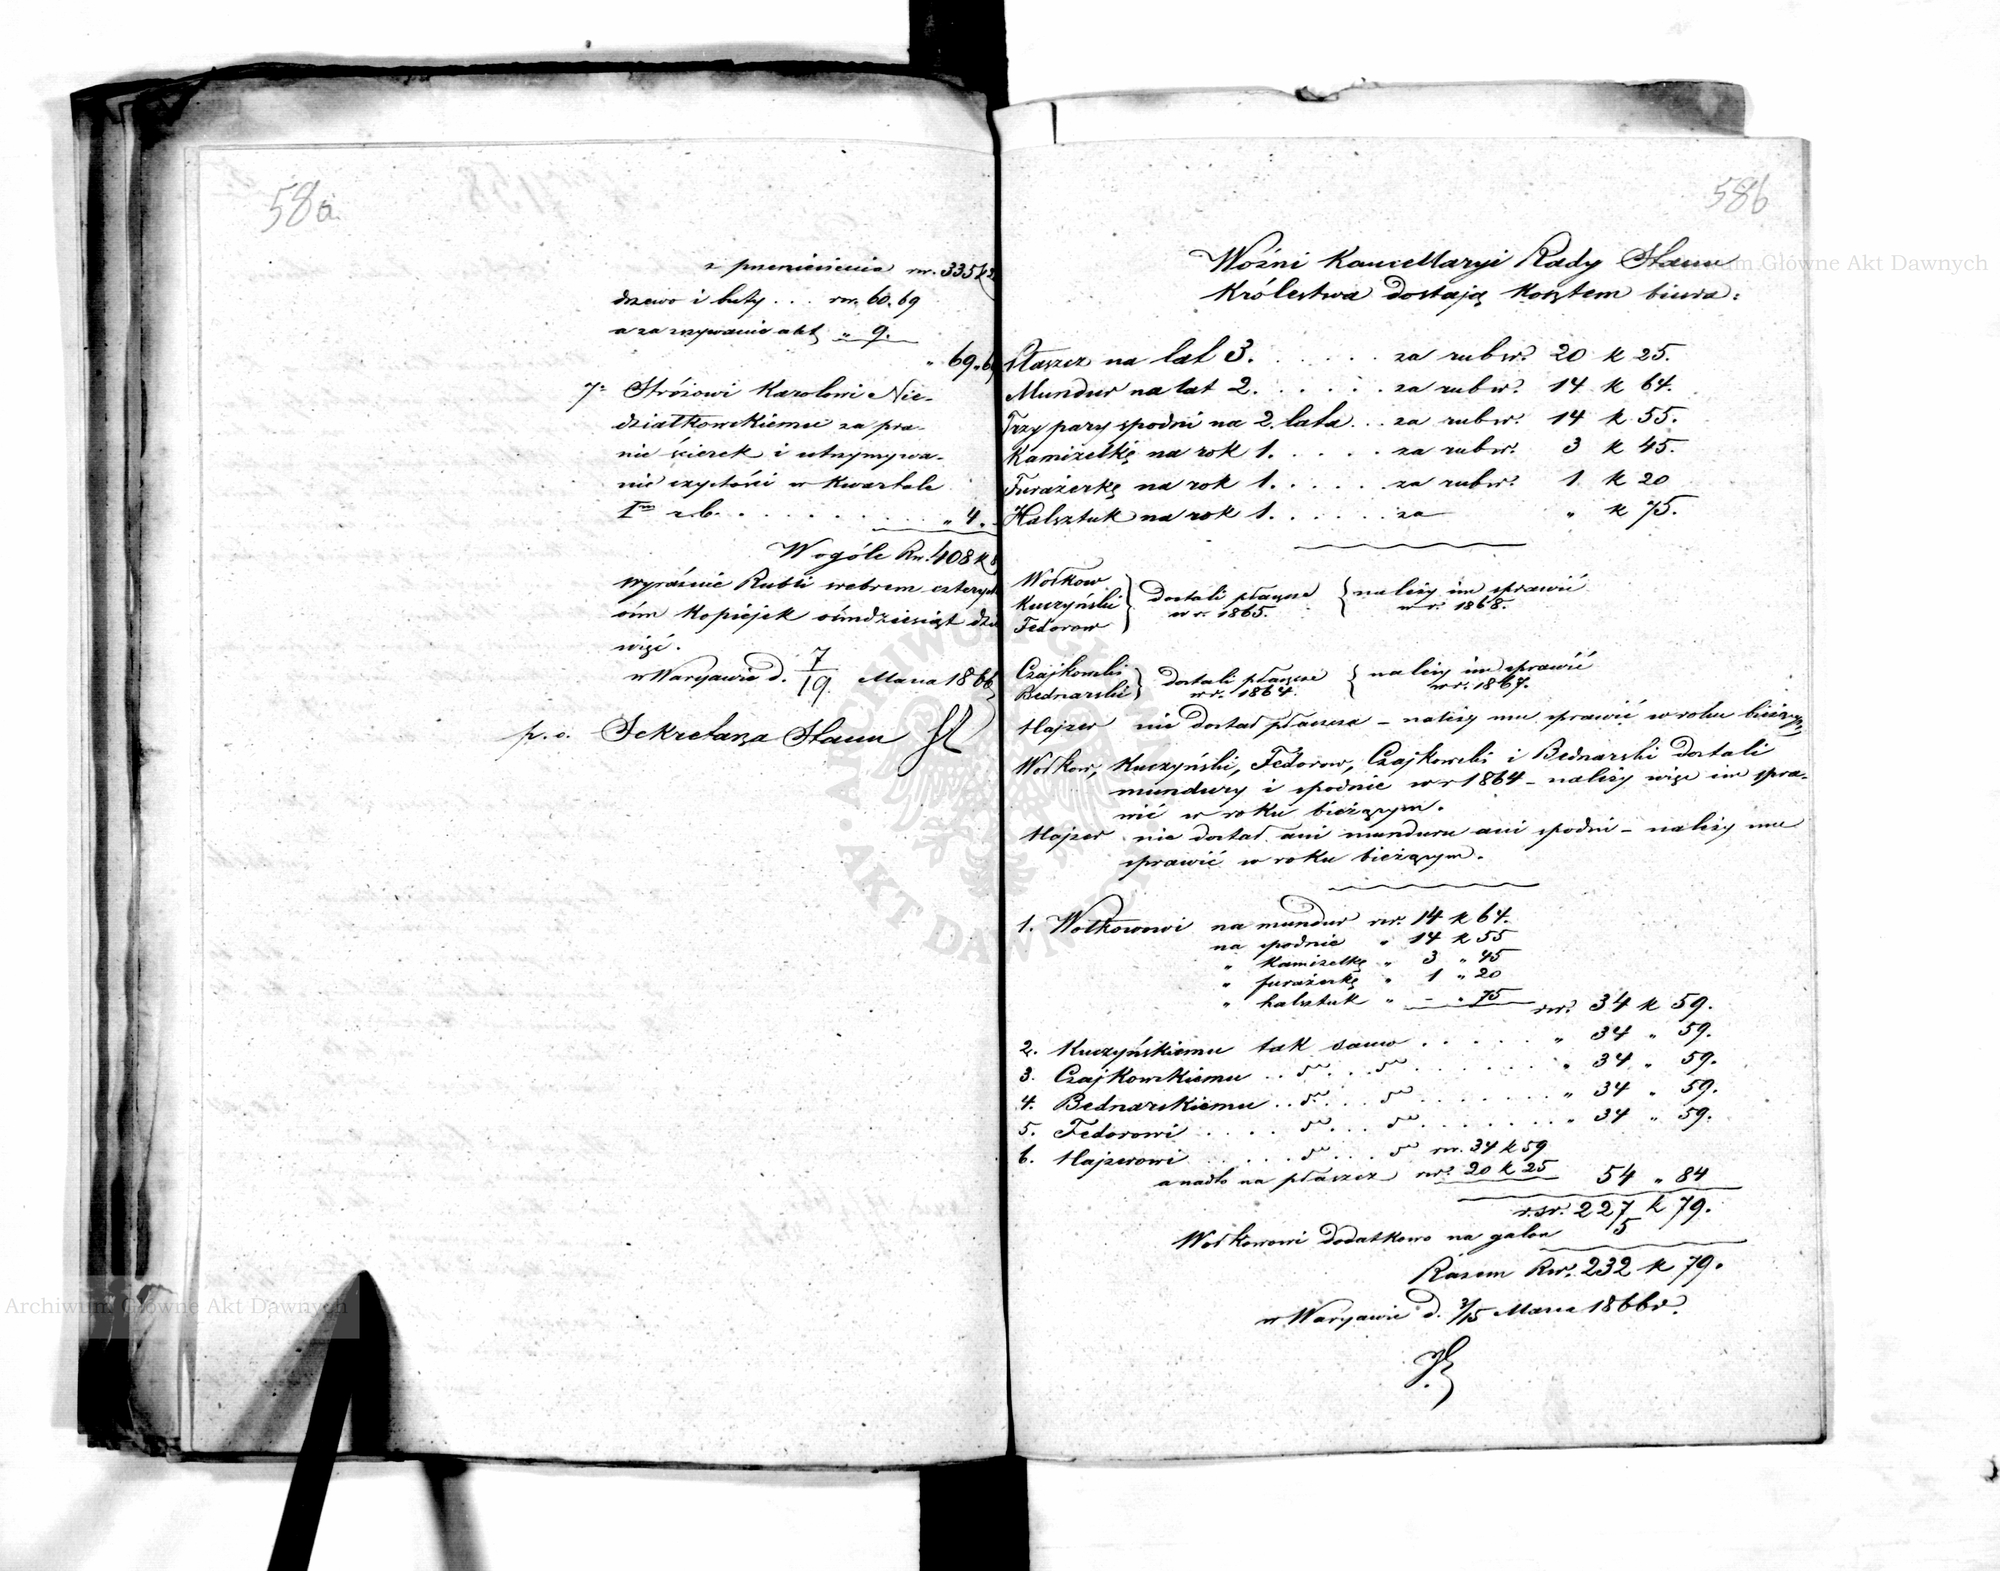 58a.
z przeniesienia rsr. 335
drzewo i buty . . . rsr. 60.69
a za zszywanie akt „ 9.
„ 69.„
7o Stróżowi Karolowi Nie-
działkowskiemu za pra-
nie ścierek i utrzymywa-
nie czystości w Kwartale
Im r.b. . . . . . . . . „ 4.
W ogóle Rsr. 408 k 8
wyraźnie Rubli srebrem czterysta
ośm Kopiejek ośmdziesiąt dzie
więć.
w Warszawie d. 7/19 Marca 1866
p. o. Sekretarza Stanu
586
Woźni Kancellaryi Rady Stanu
Królestwa dostają kosztem biura:
Płaszcz na lat 3. . . . . . za rubsr. 20 k 25.
Mundur na lat 2. . . . . . za rubsr. 14 k 64.
Trzy pary spodni na 2. lata . . . za rubsr. 14 k 55.
Kamizelkę na rok 1. . . . . za rubsr. 3 k 45.
Furażerkę na rok 1. . . . . . za rubsr. 1 k 20
Halsztuk na rok 1. . . . . . za „ k 75.
Wołkow
Kuczyński } dostali płaszcze { należy im sprawić
Fedorow w r. 1865. w r. 1868.
Czajkowski } dostali płaszcze { należy im sprawić
Bednarski w r. 1864. w r. 1867.
Hajzer nie dostał płaszcza – należy mu sprawić w roku bieżącym
Wołkow, Kuczyński, Fedorow, Czajkowski i Bednarski dostali
mundury i spodnie w r 1864 – należy więc im spra-
wić w roku bieżącym.
Hajzer nie dostał ani munduru ani spodni – należy mu
sprawić w roku bieżącym.
1. Wołkowowi na mundur rsr. 14 k 64.
na spodnie „ 14 k 55
„ kamizelkę „ 3 „ 45
„ furażerkę „ 1 „ 20
„ halsztuk „ – „ 75 rsr. 34 k 59.
2. Kuczyńskiemu tak samo . . . . . „ 34 „ 59.
3. Czajkowskiemu . . do . . . do . . . . . . . „ 34 „ 59.
4. Bednarskiemu . . do . . . do . . . . . . . „ 34 „ 59.
5. Fedorowi . . . . do . . . do . . . . . . . „ 34 „ 59.
6. Hajzerowi . . . . . do . . . do rsr. 34 k 59
a nadto na płaszcz rsr. 20 k 25 54 „ 84
r.sr. 227 k 79.
Wołkowowi dodatkowo na galon 5
Razem Rsr. 232 k 79.
w Warszawie d. 3/15 Marca 1866 r.
Archiwum Główne Akt Dawnych
Archiwum Główne Akt Dawnych
ARCHIWUM GŁÓWNE AKT DAWNYCH